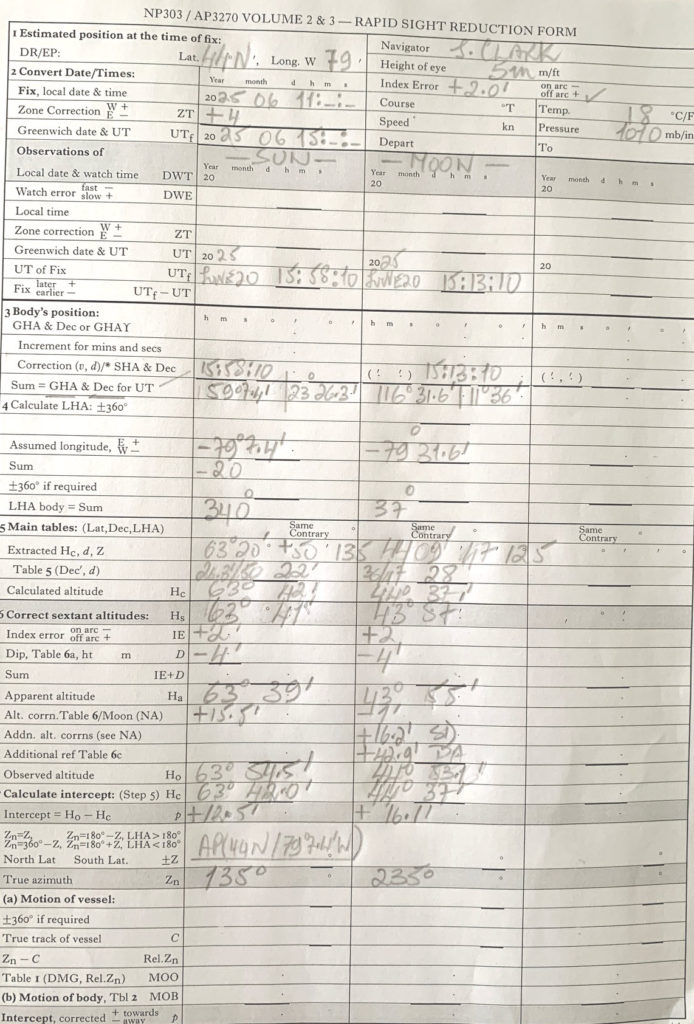 NP303 / AP3270 VOLUME 2 & 3 — RAPID SIGHT REDUCTION FORM
1 Estimated position at the time of fix:
DR/EP: Lat. 44N ', Long. W 79 '
Navigator S. CLARK
Height of eye 5m m/ft
Index Error +2.0' on arc — off arc + ✓
Course °T Temp. 18 °C/F
Speed kn Pressure 1010 mb/in
Depart To
2 Convert Date/Times: Year month d h m s
Fix, local date & time 2025 06 11:-:-
Zone Correction W + E — ZT +4
Greenwich date & UT UTf 2025 06 15:-:-
Observations of — SUN — — MOON —
Local date & watch time DWT Year month d h m s 20 Year month d h m s 20 Year month d h m s 20
Watch error fast — slow + DWE
Local time
Zone correction W + E — ZT
Greenwich date & UT UT 2025 2025 20
UT of Fix UTf JUNE20 15:58:10 JUNE20 15:13:10
Fix later + earlier — UTf – UT
3 Body's position: h m s ° ' ° ' h m s ° ' ° ' h m s ° ' ° '
GHA & Dec or GHAY
Increment for mins and secs
Correction (v, d)/* SHA & Dec 15:58:10 ( ' ' ) 15:13:10 ( ' , ' )
Sum = GHA & Dec for UT 59°7.4' 23 26.3' 116°31.6' 11°36'
4 Calculate LHA: ±360°
Assumed longitude, E + W — -79°7.4' -79°31.6'
Sum -20
±360° if required
LHA body = Sum 340° 37°
5 Main tables: (Lat,Dec,LHA) Same Contrary ° Same Contrary ° Same Contrary °
Extracted Hc, d, Z 63°20' +50' 135 44°09' '47 125
Table 5 (Dec', d) 26.3/50 22' 36/47 28
Calculated altitude Hc 63° 42' 44° 37'
6 Correct sextant altitudes: Hs 63° 41' 43° 57'
Index error on arc — off arc + IE +2' +2
Dip, Table 6a, ht m D -4' -4'
Sum IE+D
Apparent altitude Ha 63° 39' 43° 55'
Alt. corrn.Table 6/Moon (NA) +15.5'
Addn. alt. corrns (see NA) +16.2' SD
Additional ref Table 6c +42.9'
Observed altitude Ho 63° 54.5' 44° 53.1'
Calculate intercept: (Step 5) Hc 63° 42.0' 44° 37'
Intercept = Ho – Hc p +12.5' + 16.1'
Zn=Z, Zn=180°–Z, LHA> 180°
Zn=360°–Z, Zn=180°+Z, LHA< 180°
AP(44N/79°7.4'W)
North Lat South Lat. ±Z
True azimuth Zn 135° 235°
(a) Motion of vessel:
±360° if required
True track of vessel C
Zn – C Rel.Zn
Table 1 (DMG, Rel.Zn) MOO
(b) Motion of body, Tbl 2 MOB
Intercept, corrected + towards — away p